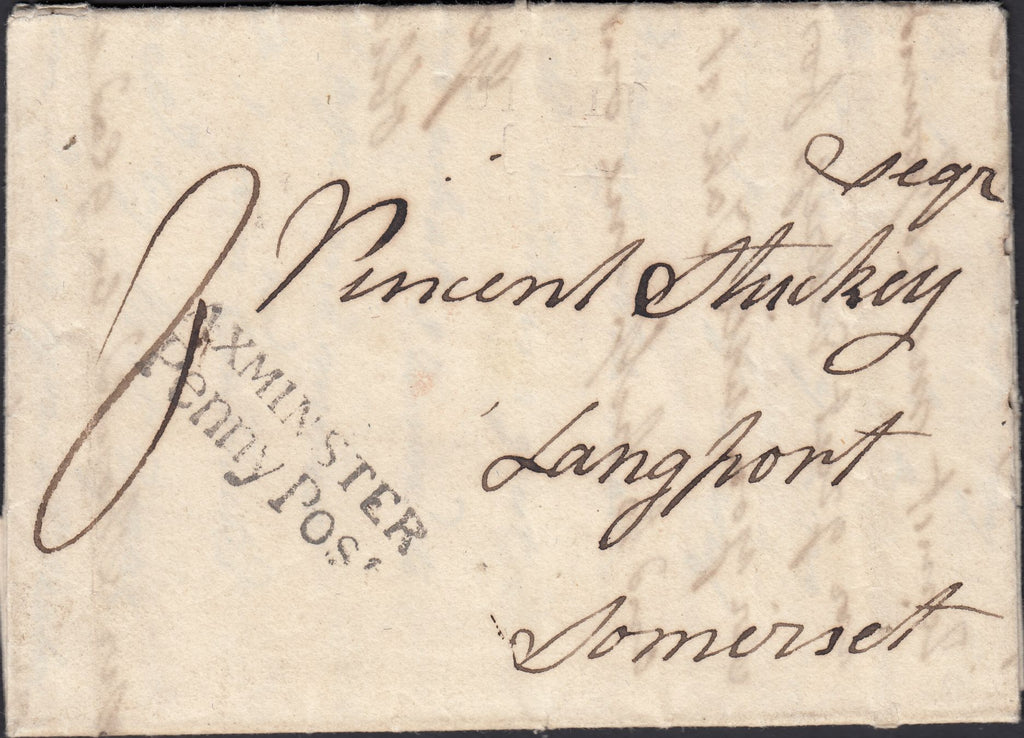 Vincent Stuckey
Langport
Somerset
AXMINSTER
Penny Post